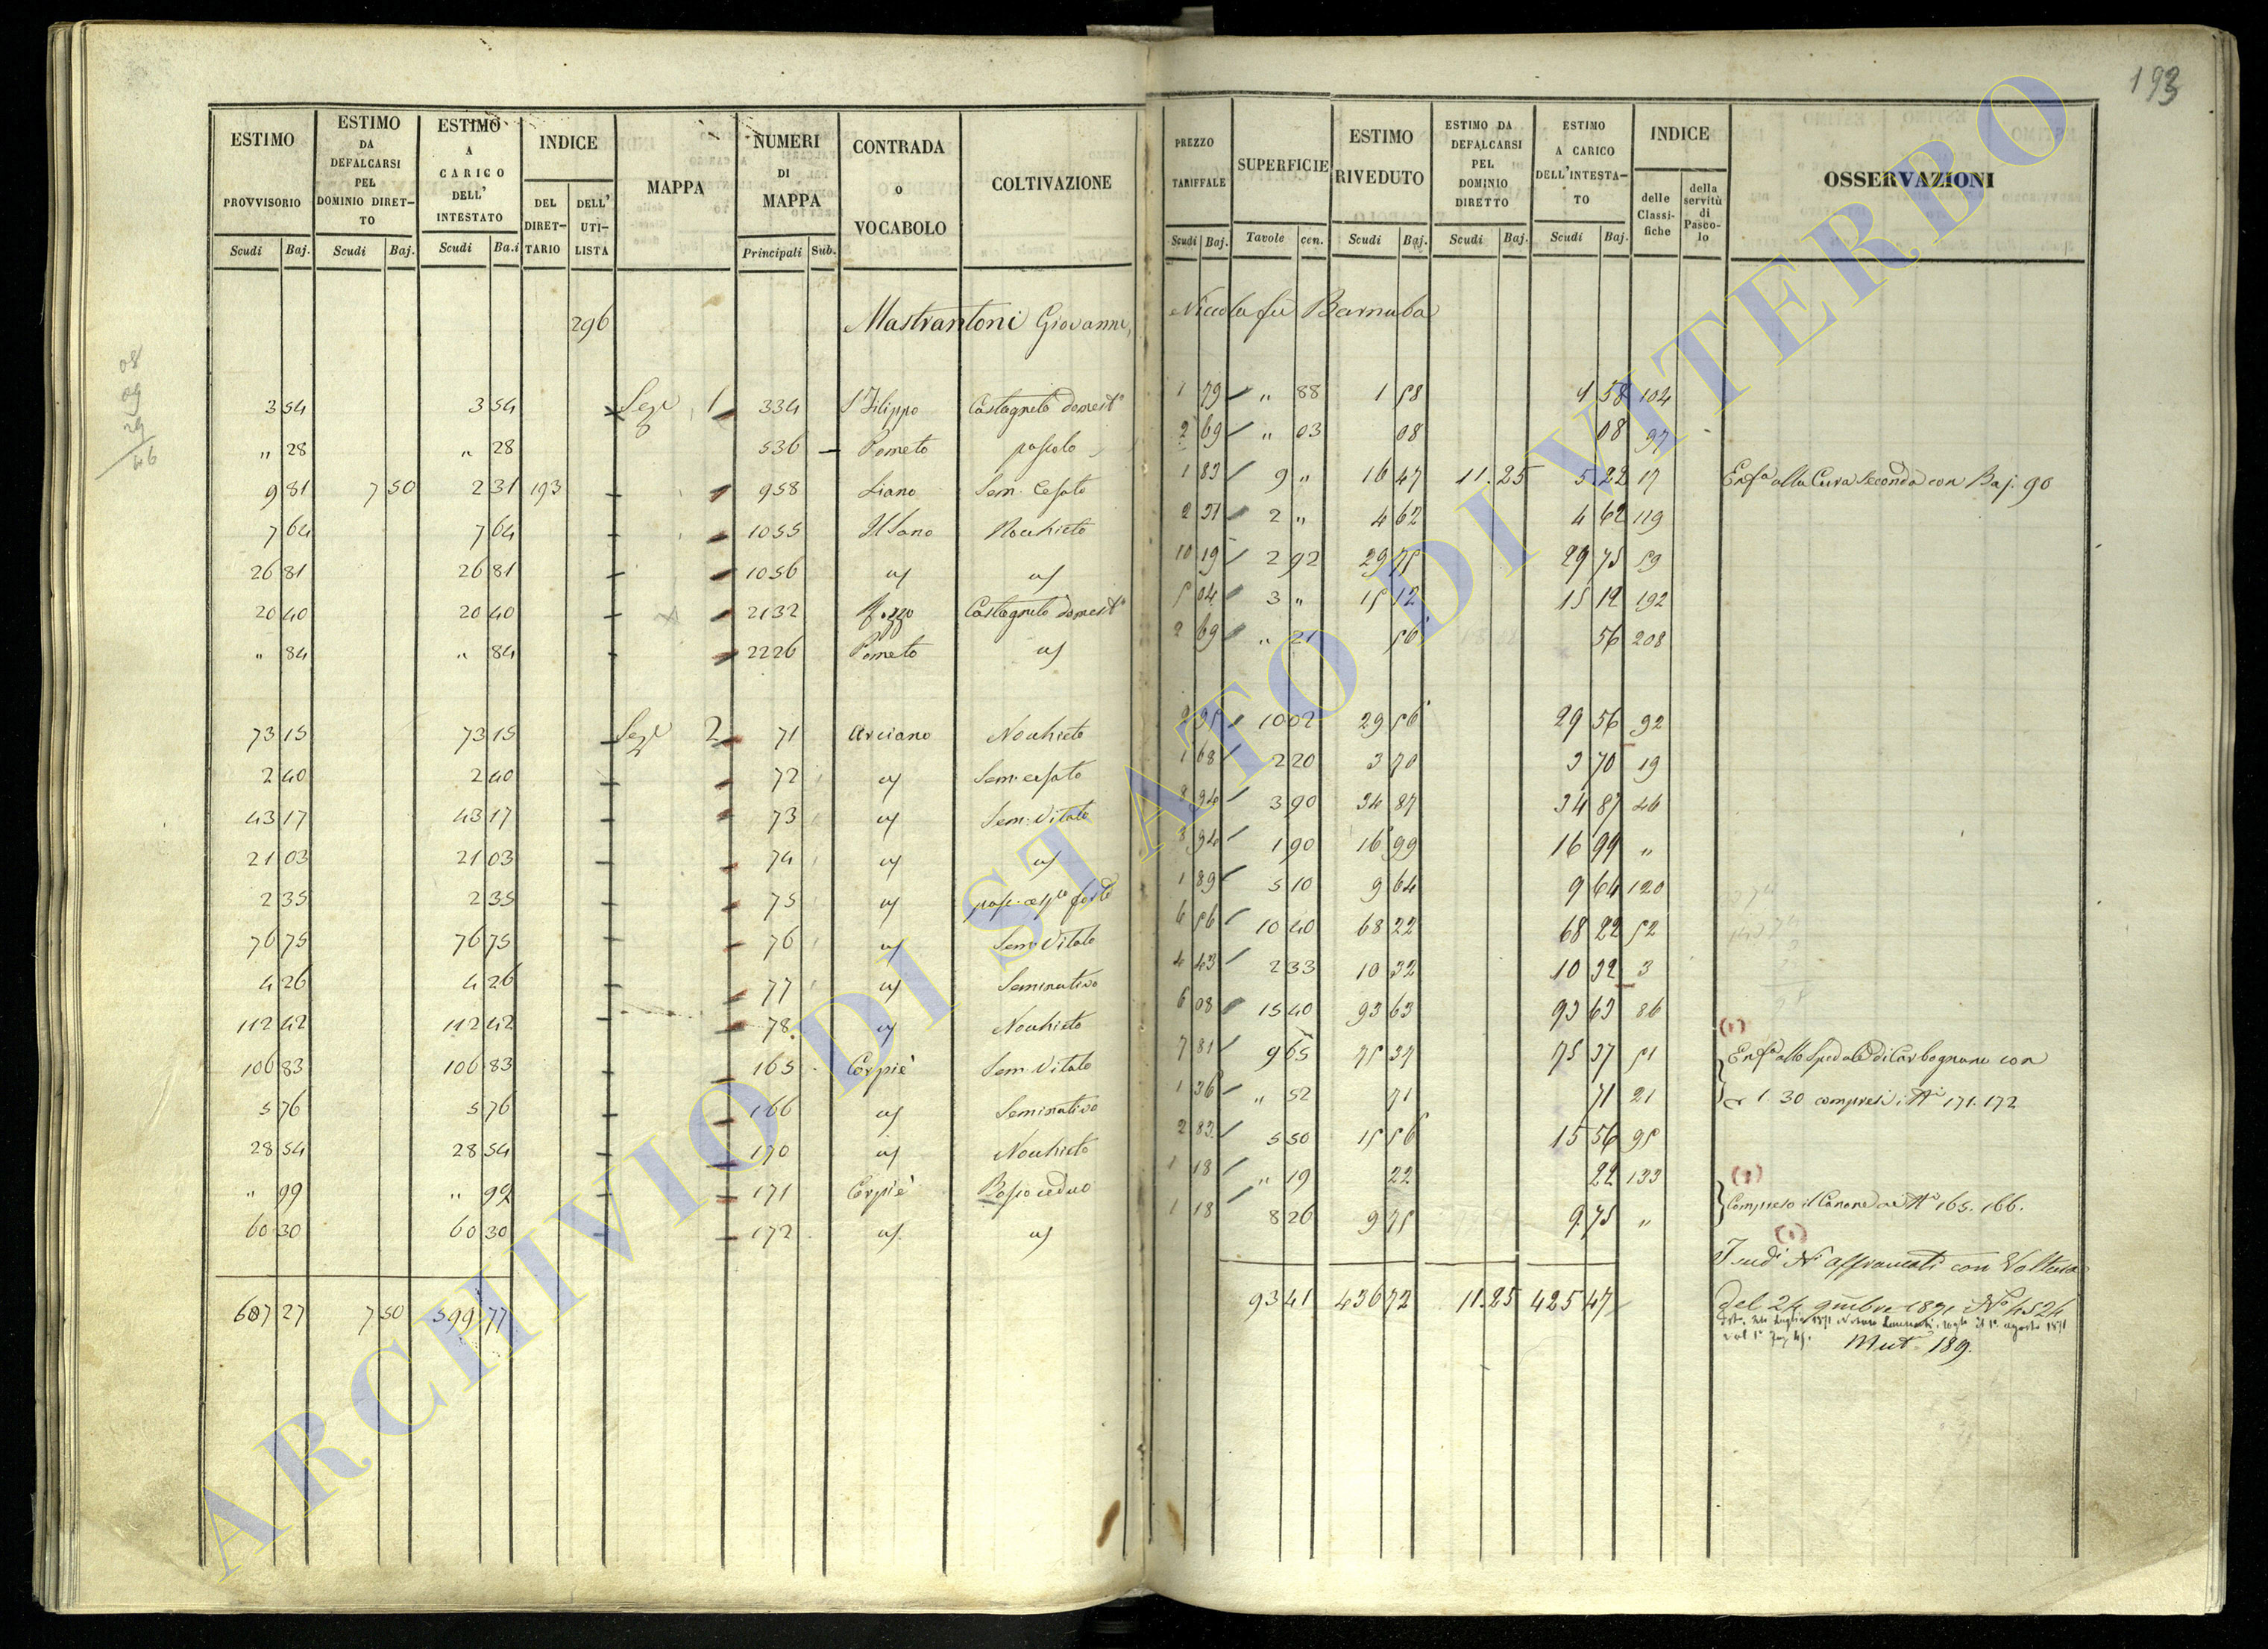 193
ESTIMO PROVVISORIO Scudi Baj. | ESTIMO DA DEFALCARSI PEL DOMINIO DIRET-TO Scudi Baj. | ESTIMO A CARICO DELL' INTESTATO Scudi Ba.i | INDICE DEL DIRET-TARIO DELL' UTI-LISTA | MAPPA | NUMERI DI MAPPA Principali Sub. | CONTRADA o VOCABOLO | COLTIVAZIONE | PREZZO TARIFFALE Scudi Baj. | SUPERFICIE Tavole cen. | ESTIMO RIVEDUTO Scudi Baj. | ESTIMO DA DEFALCARSI PEL DOMINIO DIRETTO Scudi Baj. | ESTIMO A CARICO DELL'INTESTA-TO Scudi Baj. | INDICE delle Classi-fiche della servitù di Pasco-lo | OSSERVAZIONI
296 Mastrantoni Giovanni, Nicola fu Barnaba
3 54 3 54 Sez.e 1 334 S. Filippo Castagneto domest.o 1 79 " 88 1 58 1 58 104
" 28 " 28 536 Pometo pascolo 2 69 " 03 08 08 97
9 81 7 50 2 31 193 958 Liano Sem. Cesato 1 83 9 " 16 47 11.25 5 22 17 Enf.a alla Cura Seconda con Baj. 90
7 64 7 64 1055 Nochieto 2 31 2 " 4 62 4 62 119
26 81 26 81 1056 " " 10 19 2 92 29 75 29 75 59
20 40 20 40 2132 Castagneto domest.o 5 04 3 " 15 12 15 12 192
" 84 " 84 2226 Pometo " 2 69 " 21 56 56 208
73 15 73 15 Sez.e 2 71 Arciano Nochieto 2 95 10 02 29 56 29 56 92
2 40 2 40 72 " Sem. cesato 1 68 2 20 3 70 3 70 19
43 17 43 17 73 " Sem. Vitato 8 94 3 90 34 87 34 87 46
21 03 21 03 74 " " 8 94 1 90 16 99 16 99 "
2 35 2 35 75 " 1 89 5 10 9 64 9 64 120
76 75 76 75 76 " Sem. Vitato 6 56 10 40 68 22 68 22 52
4 26 4 26 77 " Seminativo 4 43 2 33 10 32 10 32 3
112 42 112 42 78 " Nochieto 6 08 15 40 93 63 93 63 86
(1)
106 83 106 83 165 Corpiè Sem. Vitato 7 81 9 65 75 37 75 37 51 Enf.a allo Spedale di Carbognano con
5 76 5 76 166 " Seminativo 1 36 " 52 71 71 21 1.30 compresi i N.i 171.172
28 54 28 54 170 " Nochieto 2 83 5 50 15 56 15 56 95
(1)
" 99 " 99 171 Corpiè Bosco ceduo 1 18 " 19 22 22 133 Compreso il Canone ai N.i 165. 166.
60 30 60 30 172 " " 1 18 8 26 9 75 9 75 "
(1)
N.i affrancati con Voltura
607 27 7 50 599 77 93 41 436 72 11.25 425 47 del 24 9mbre 1871 N.o 4524
Mut. 189.
08
09
29
46
ARCHIVIO DI STATO DI VITERBO